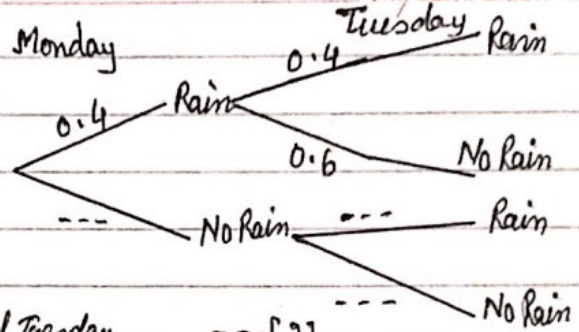 Monday
Tuesday
0.4
Rain
0.4
Rain
0.6
No Rain
---
No Rain
---
Rain
---
No Rain
Tuesday